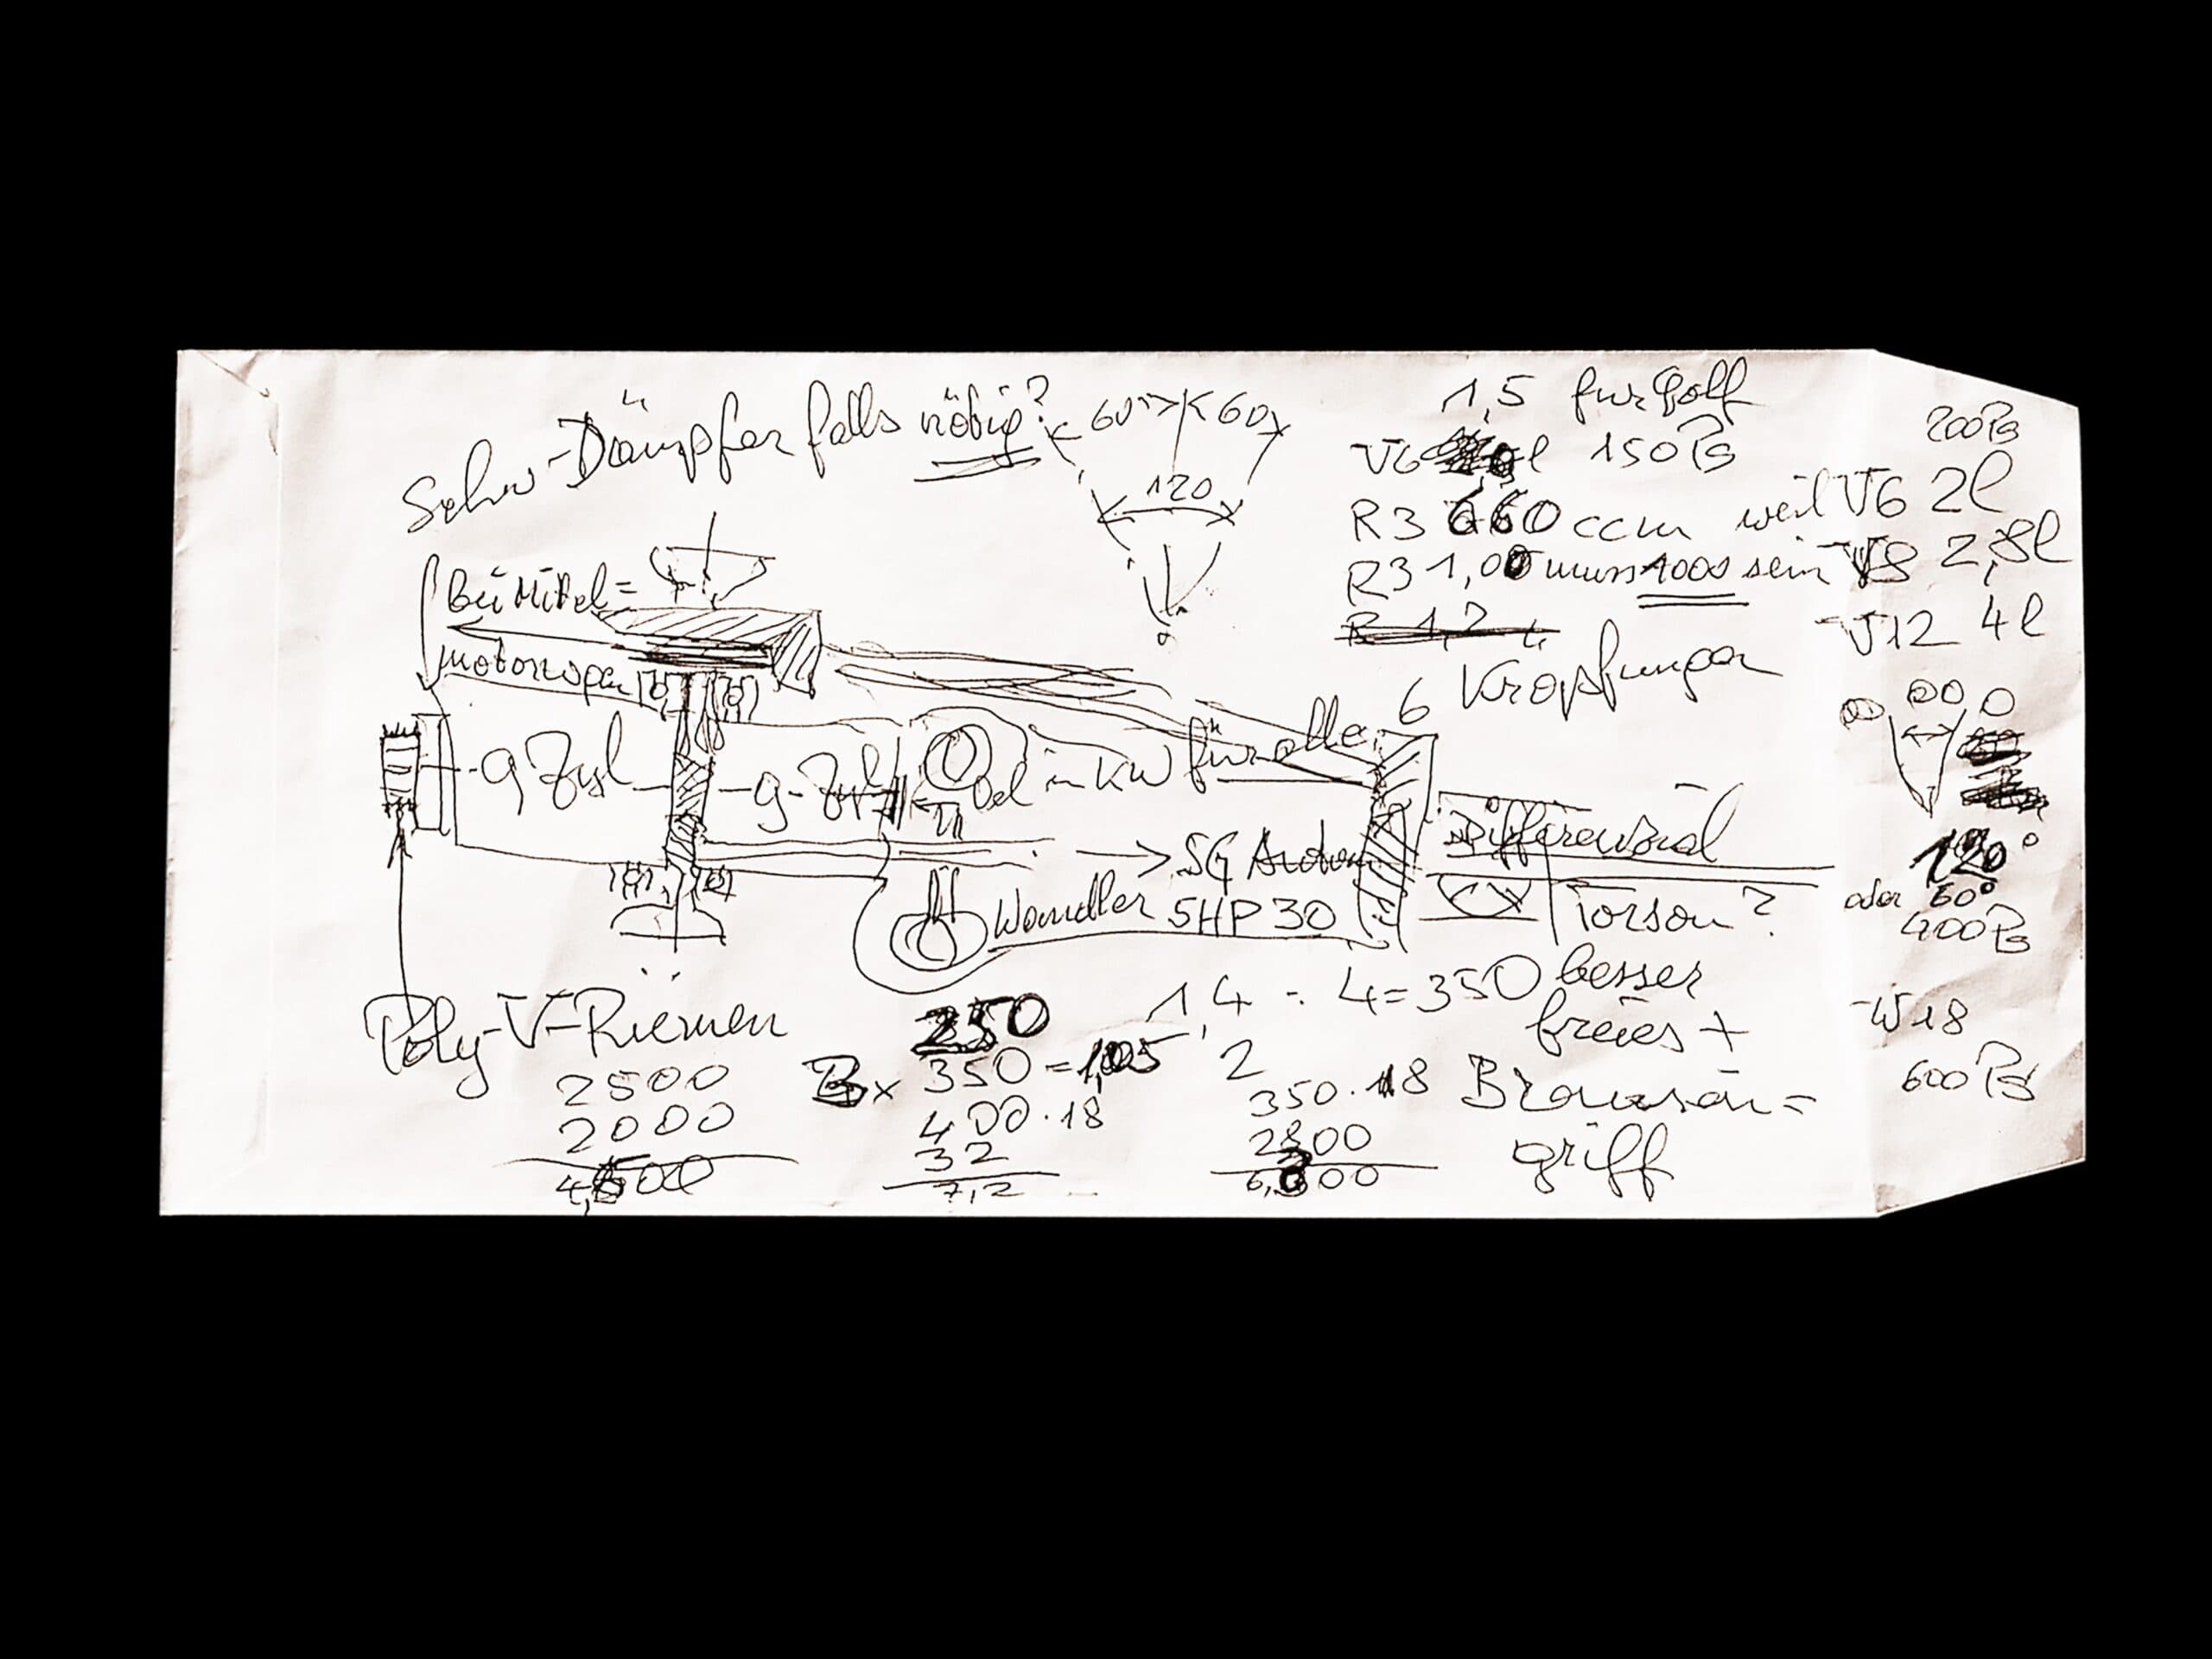 Schw-Dämpfer falls nötig?
60° 60
120
1,5 für Golf
V6 l 150 Ps
R3 660 ccm weil V6 2l
200 Ps
R3 1,00 muss 1000 sein V8 2,8l
R 1,2
V12 4l
6 Kröpfungen
Bei Mittel=
motorwagen
9 Zyl
9-Zyl
Öl in KW für alle
5G Autom
Wandler 5HP30
Differenzial
Torsen?
120°
oder 60°
400 Ps
W18
600 Ps
Poly-V-Riemen
2500
2000
4,500
250
3x 350 = 1,05
400 · 18
32
7,2
1,4 : 4 = 350 besser
2
350 · 18
2800
6,300
freies +
Drehsen=
griff